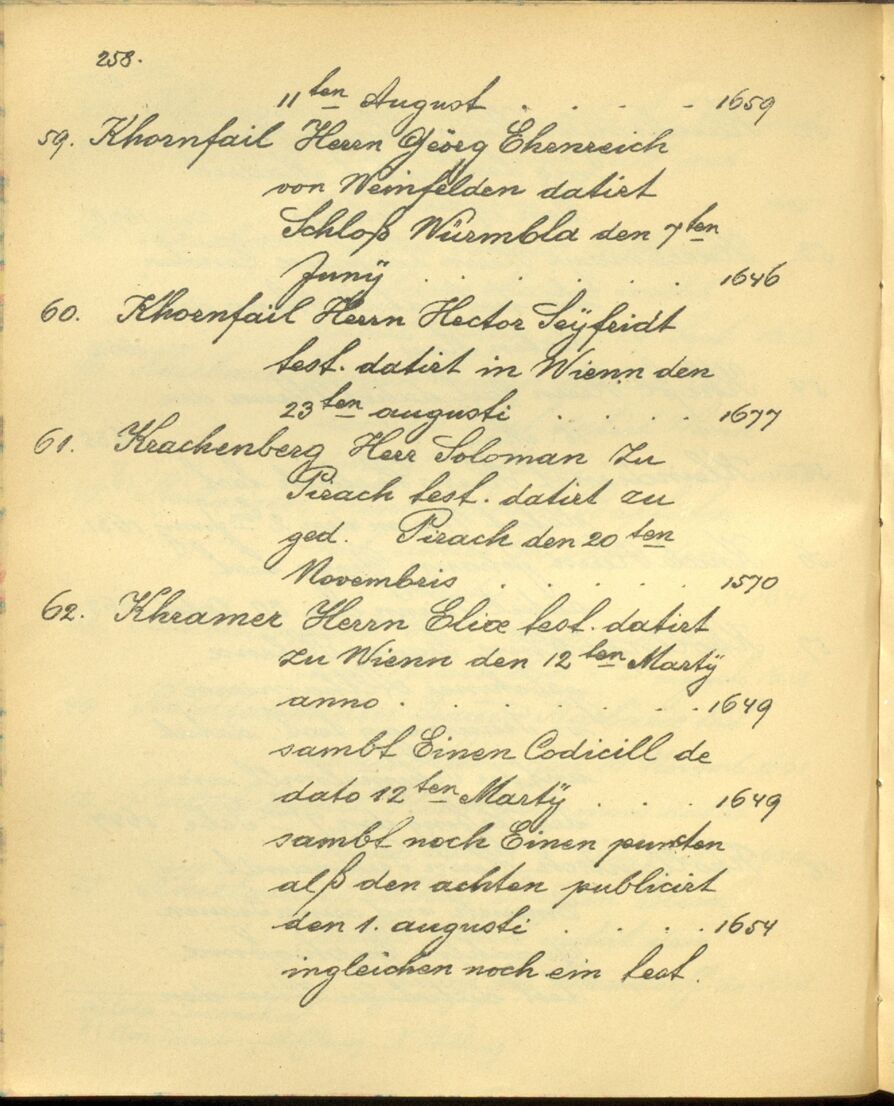 258.
11ten August . . . - 1659
59. Khornfail Herrn Geörg Ehenreich
von Weinfelden datirt
Schloß Würmbla den 7ten
Junÿ . . . . . 1646
60. Khornfail Herrn Hector Seÿfridt
test. datirt in Wienn den
23ten augusti . . . . 1677
61. Krachenberg Herr Soloman Zu
Pirach test. datirt zu
ged. Pirach den 20ten
Novembris . . . . . 1570
62. Khramer Herrn Eliæ test. datirt
zu Wienn den 12ten Martÿ
anno . . . . . . . 1649
sambt Einen Codicill de
dato 12ten Martÿ . . . 1649
sambt noch Einen puncten
alß den achten publicirt
den 1. augusti . . . . 1654
ingleichen noch ein test.